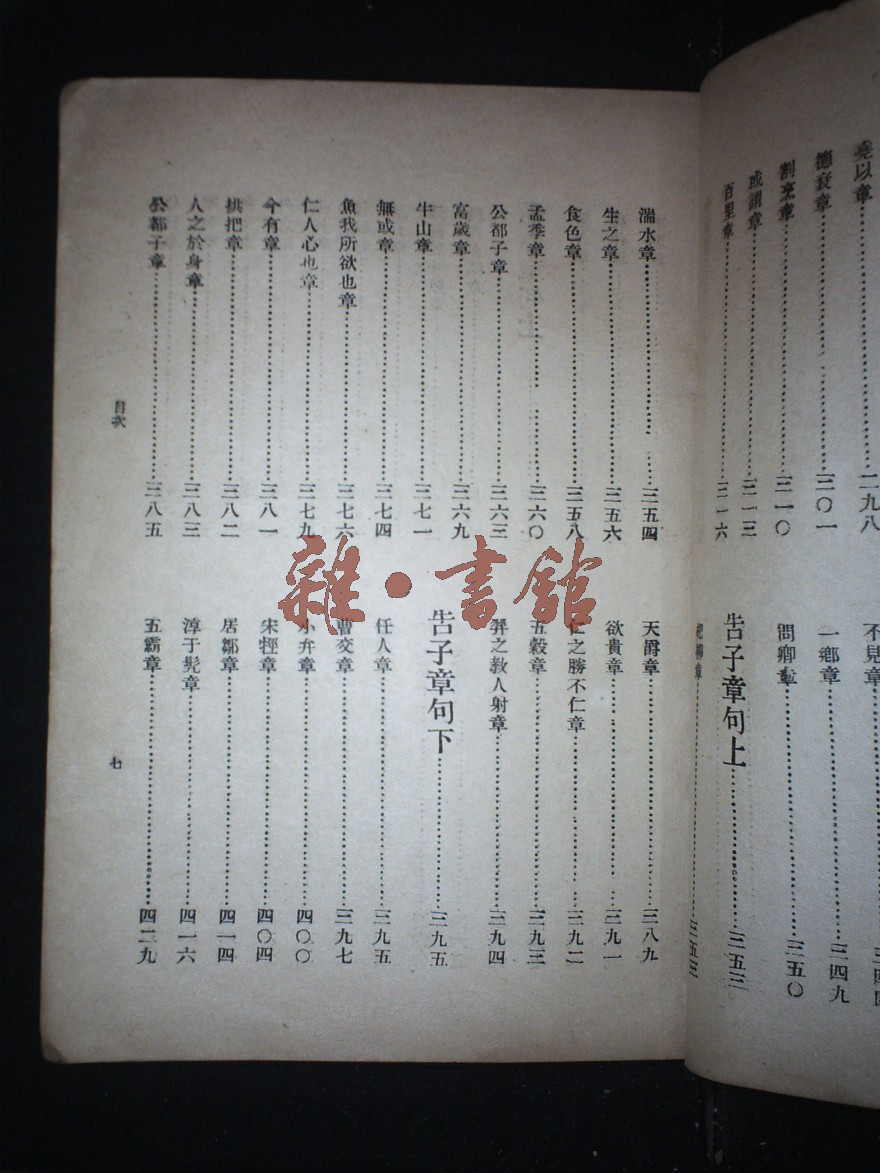 堯以章……二九八
德衰章……三〇一
割烹章……三一〇
或謂章……三一三
百里章……三一六
不見章
一鄉章……三四九
問卿章……三五〇
告子章句上……三五三
杞柳章……三五三
湍水章……三五四
生之章……三五六
食色章……三五八
孟季章……三六〇
公都子章……三六三
富歲章……三六九
牛山章……三七一
無或章……三七四
魚我所欲也章……三七六
仁人心也章……三七九
今有章……三八一
拱把章……三八二
人之於身章……三八三
公都子章……三八五
天爵章……三八九
欲貴章……三九一
仁之勝不仁章……三九二
五穀章……三九三
羿之教人射章……三九四
告子章句下……三九五
任人章……三九五
曹交章……三九七
小弁章……四〇〇
宋牼章……四〇四
居鄒章……四一四
淳于髡章……四一六
五霸章……四二九
目次
七
雜·書館